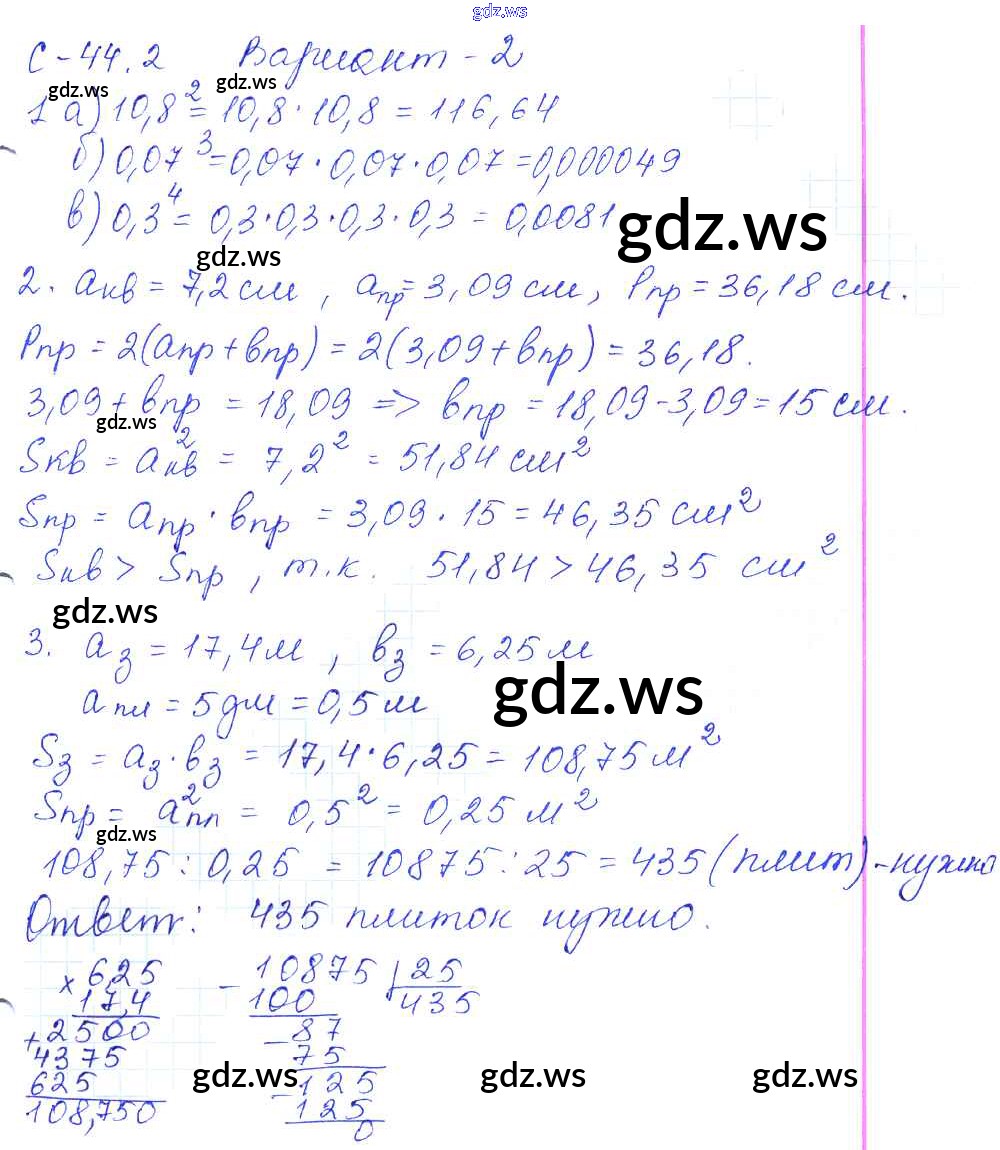 gdz.ws
С-44.2 Вариант - 2
gdz.ws gdz.ws
1 а) 10,8² = 10,8 · 10,8 = 116,64
б) 0,07³ = 0,07 · 0,07 · 0,07 = 0,000049
в) 0,3⁴ = 0,3 · 0,3 · 0,3 · 0,3 = 0,0081
gdz.ws gdz.ws
2. aкв = 7,2 см, aпр = 3,09 см, Pпр = 36,18 см.
Pпр = 2(aпр + bпр) = 2(3,09 + bпр) = 36,18.
3,09 + bпр = 18,09 => bпр = 18,09 - 3,09 = 15 см.
gdz.ws
Sкв = a²кв = 7,2² = 51,84 см²
Sпр = aпр · bпр = 3,09 · 15 = 46,35 см²
Sкв > Sпр, т.к. 51,84 > 46,35 см²
gdz.ws
3. aз = 17,4 м, bз = 6,25 м
gdz.ws
aпл = 5 дм = 0,5 м
Sз = aз · bз = 17,4 · 6,25 = 108,75 м²
Sпр = a²пл = 0,5² = 0,25 м²
gdz.ws
108,75 : 0,25 = 10875 : 25 = 435 (плит) - нужно
Ответ: 435 плиток нужно.
× 6,25 - 10875 | 25
17,4 100 435
+ 2500 - 87
4375 75
625 - 125
108,750 125
0
gdz.ws gdz.ws gdz.ws